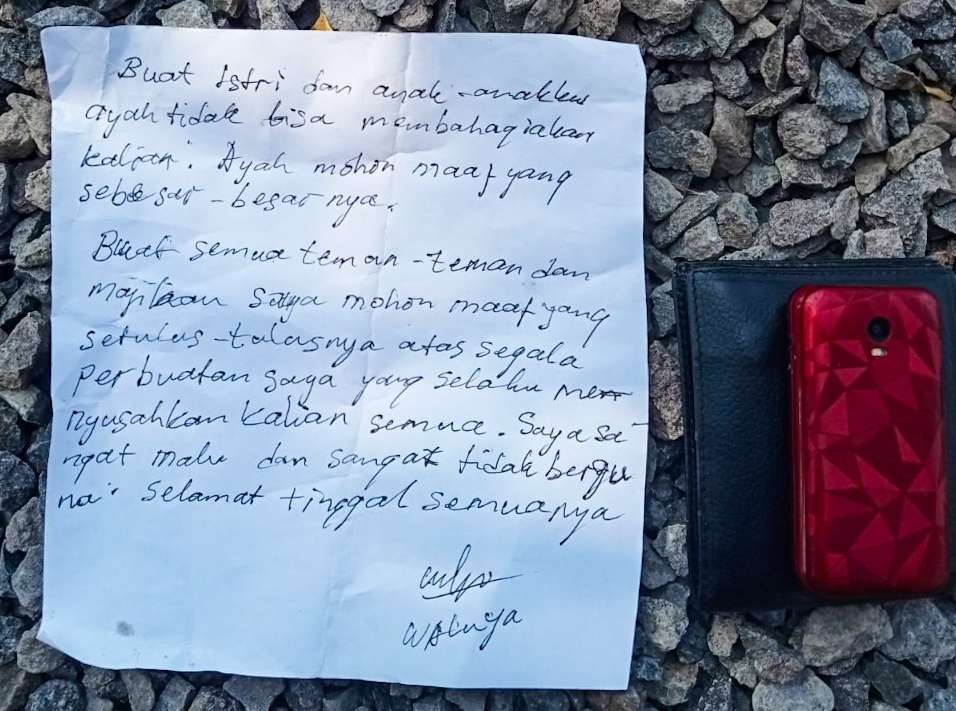 Buat Istri dan anak-anakku
ayah tidak bisa membahagiakan
kalian. Ayah mohon maaf yang
sebesar-besarnya.
Buat semua teman-teman dan
majikan saya mohon maaf yang
setulus-tulusnya atas segala
perbuatan saya yang selalu men
nyusahkan kalian semua. Saya sa-
ngat malu dan sangat tidak bergu
na. Selamat tinggal semuanya
Waluya